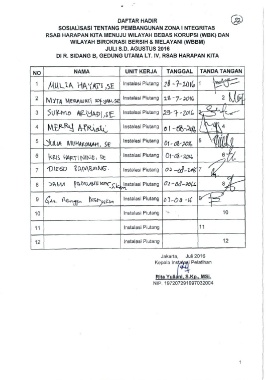 DAFTAR HADIR
SOSIALISASI TENTANG PEMBANGUNAN ZONA INTEGRITAS
RSAB HARAPAN KITA MENUJU WILAYAH BEBAS KORUPSI (WBK) DAN
WILAYAH BIROKRASI BERSIH & MELAYANI (WBBM)
JULI S.D. AGUSTUS 2016
DI R. SIDANG B, GEDUNG UTAMA LT. IV, RSAB HARAPAN KITA
NO NAMA UNIT KERJA TANGGAL TANDA TANGAN
1 MULIA HAYATI, SE Instalasi Piutang 28-7-2016 1
2 Instalasi Piutang 28-7-2016 2
3 SUKMO ARIYADI, SE Instalasi Piutang 29-7-2016 3
4 MERRY APRIALI Instalasi Piutang 01-08-2016 4
5 MUHAROMAH, SE Instalasi Piutang 01-08-2016 5
6 KRIS HARTININGSIH, SE Instalasi Piutang 01-08-2016 6
7 DIEGO Instalasi Piutang 02-08-2016 7
8 Instalasi Piutang 02-08-2016 8
9 Instalasi Piutang 03-08-16 9
10 Instalasi Piutang 10
11 Instalasi Piutang 11
12 Instalasi Piutang 12
Jakarta, Juli 2016
Kepala Instalasi Pelatihan
Rita Yuliani, S.Kp., MSi.
NIP. 197207291997032004
1